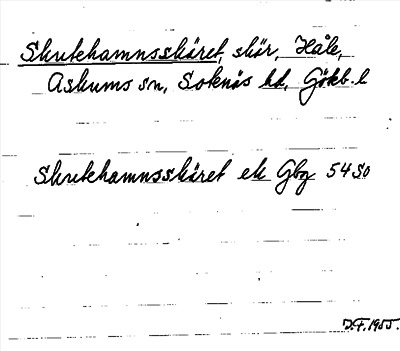 Skutehamnsskäret, skär, Håle,
Askums sn, Sotenäs hd, Gbgb. l
Skutehamnsskäret ek Gbg 54 SO
D.F. 1955.